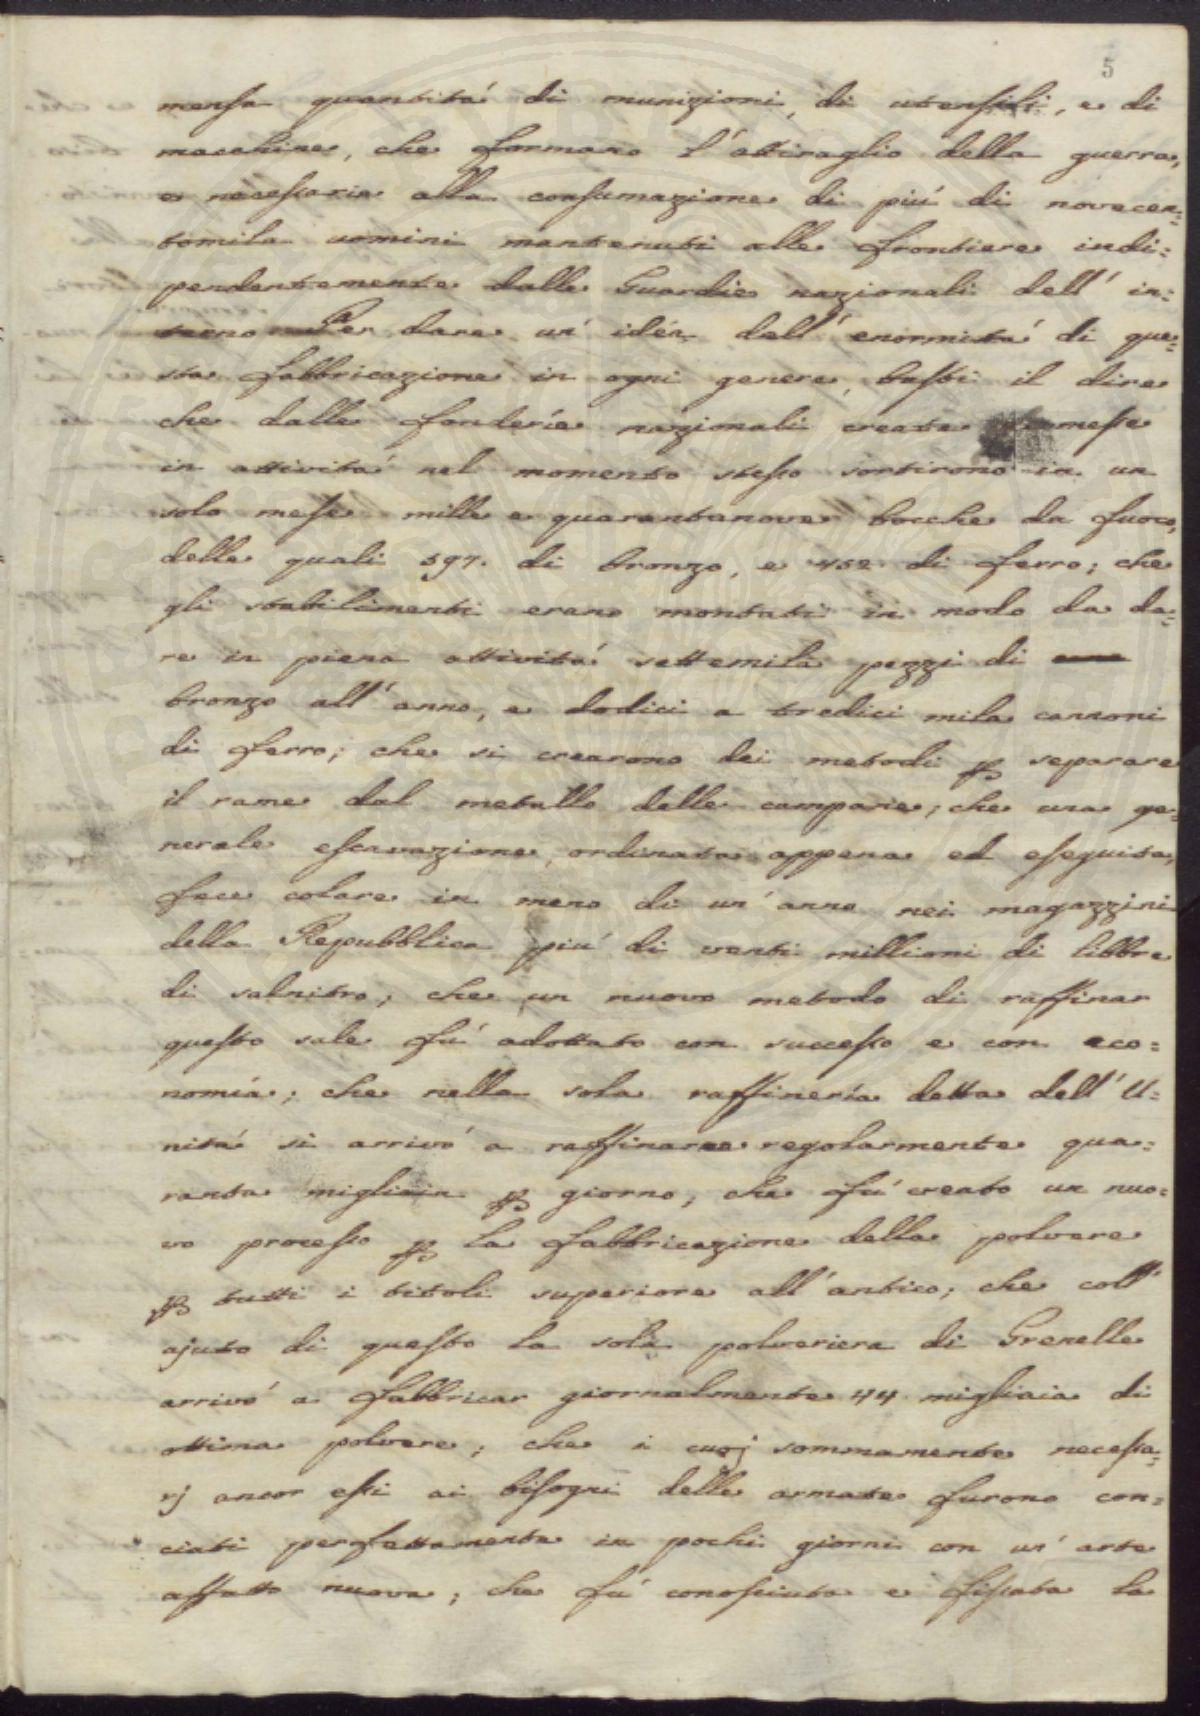 5
mensa quantitá di munizioni, di utensili, e di
macchine, che formano l'attiraglio della guerra,
e necessarie alla consumazione di piú di novecen=
tomila uomini mantenuti alle frontiere indi=
pendentemente dalle Guardie nazionali dell' in=
terno Per dare un' idéa dell' enormitá di que=
sta fabbricazione in ogni genere, basti il dire
che dalle fonderíe nazionali create messe
in attivitá nel momento stesso sortirono in un
solo mese mille e quarantanove bocche da fuoco,
delle quali 597. di bronzo, e 452 di ferro; che
gli stabilimenti erano montati in módo da da=
re in piena attivitá settemila pezzi di
bronzo all' anno, e dodici a tredici mila cannoni
di ferro; che si crearono dei metodi ꝑ separare
il rame dal metallo delle campane; che una ge=
nerale escavazione, ordinata appena ed eseguita,
fece colare in meno di un' anno nei magazzini
della Repubblica piú di venti millioni di libbre
di salnitro; che un nuovo metodo di raffinar
questo sale fú adottato con successo e con eco=
nomía; che nella sola raffinería detta dell' U=
nitá si arrivó a raffinarne regolarmente qua=
ranta migliaia ꝑ giorno; che fú creato un nuo=
vo processo ꝑ la fabbricazione della polvere
ꝑ tutti i titoli superiore all' antico; che coll'
ajuto di questo la sola polveriera di Grenelle
arrivó a fabbricar giornalmente 44 migliaia di
ottima polvere; che i cuoj sommamente necessa=
rj ancor essi ai bisogni delle armate furono con=
ciati perfettamente in pochi giorni con un' arte
affatto nuova; che fú conosciuta e fissata la